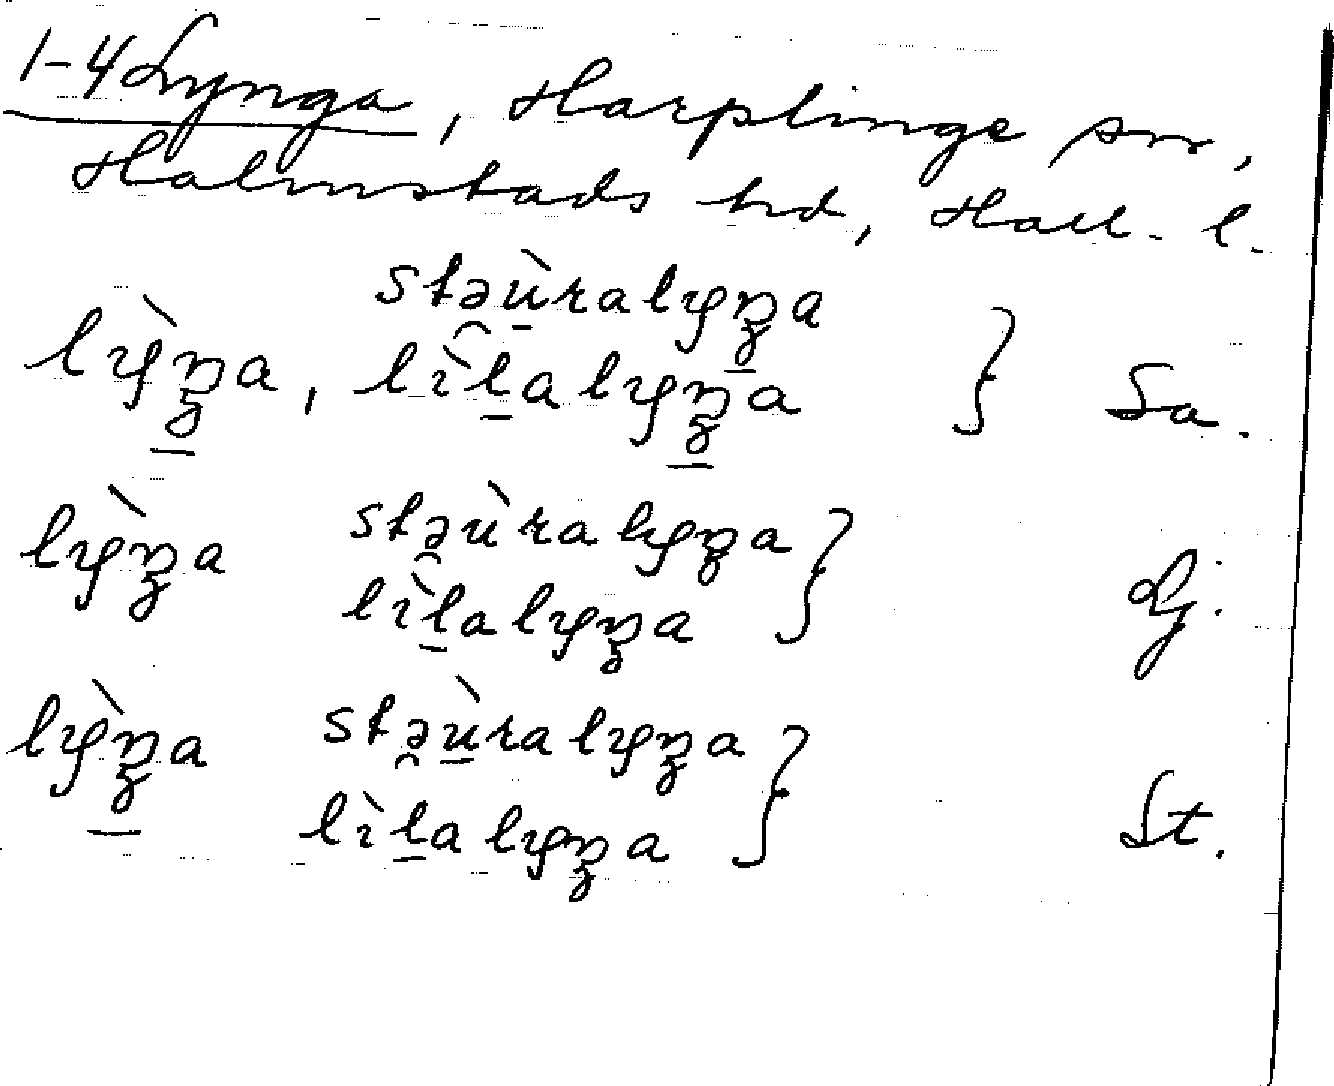 1-4 Lynga, Harplinge sn,
Halmstads hd, Hall. l.
stə̯ù̱ralyŋa
lỳŋa, lìḻalyŋa } Sa.
lỳŋa stə̯ùralyŋa
lìḻalyŋa } Lj.
lỳŋa stə̯ù̱ralyŋa
lìḻalyŋa } St.